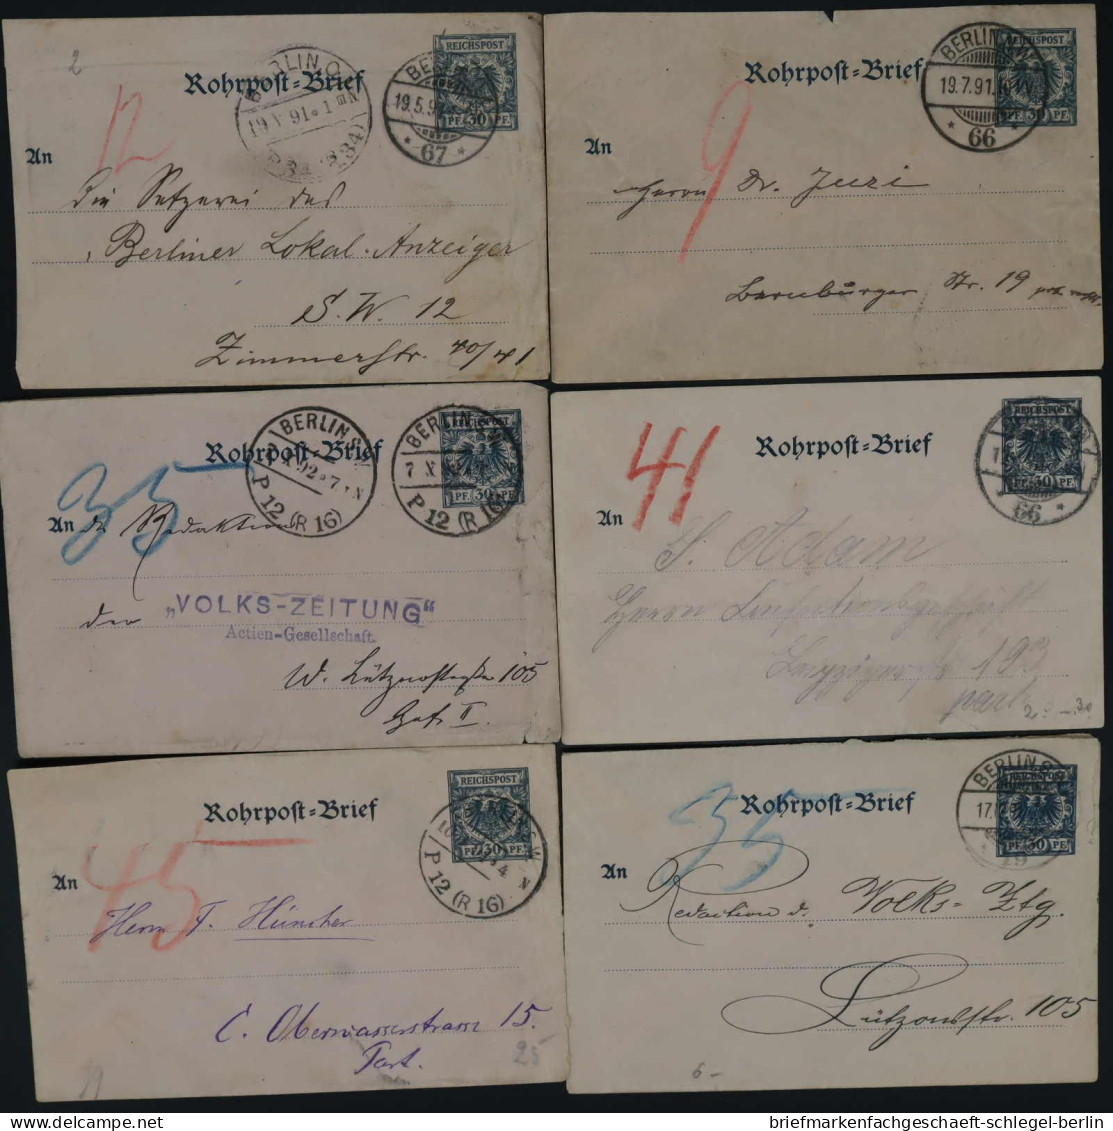 2
12
Rohrpost-Brief
BERLIN.O.
19 V 91 1 N
REICHSPOST
PF. 30 PF.
19.5.9
* 67 *
An
Die Setzerei des
Berliner Lokal-Anzeiger
S. W. 12
Zimmerstr. 40/41
9
Rohrpost-Brief
BERLIN
19.7.91.
* 66 *
PF. 30 PF.
An
Herrn Dr. Juzi
Bernburger Str. 19
35
Rohrpost-Brief
BERLIN
92 7
P 12 (R 16)
BERLIN
7 X
P 12 (R 16)
REICHSPOST
PF. 30 PF.
An die Redaktion
der
„VOLKS-ZEITUNG“
Actien-Gesellschaft.
W. Lützowstraße 105
Hof II.
41
Rohrpost-Brief
REICHSPOST
PF. 30 PF.
66 *
An
S. Adam
Herrn
193
45
Rohrpost-Brief
REICHSPOST
PF. 30 PF.
P 12 (R 16)
An
Herrn F. Hüncher
C. Oberwasserstrasse 15.
Part.
25
35
Rohrpost-Brief
BERLIN
17.
PF. 30 PF.
An
Redaction d. Volks-Ztg.
Lützowstr. 105
6-
briefmarkenfachgeschaeft-schlegel-berlin